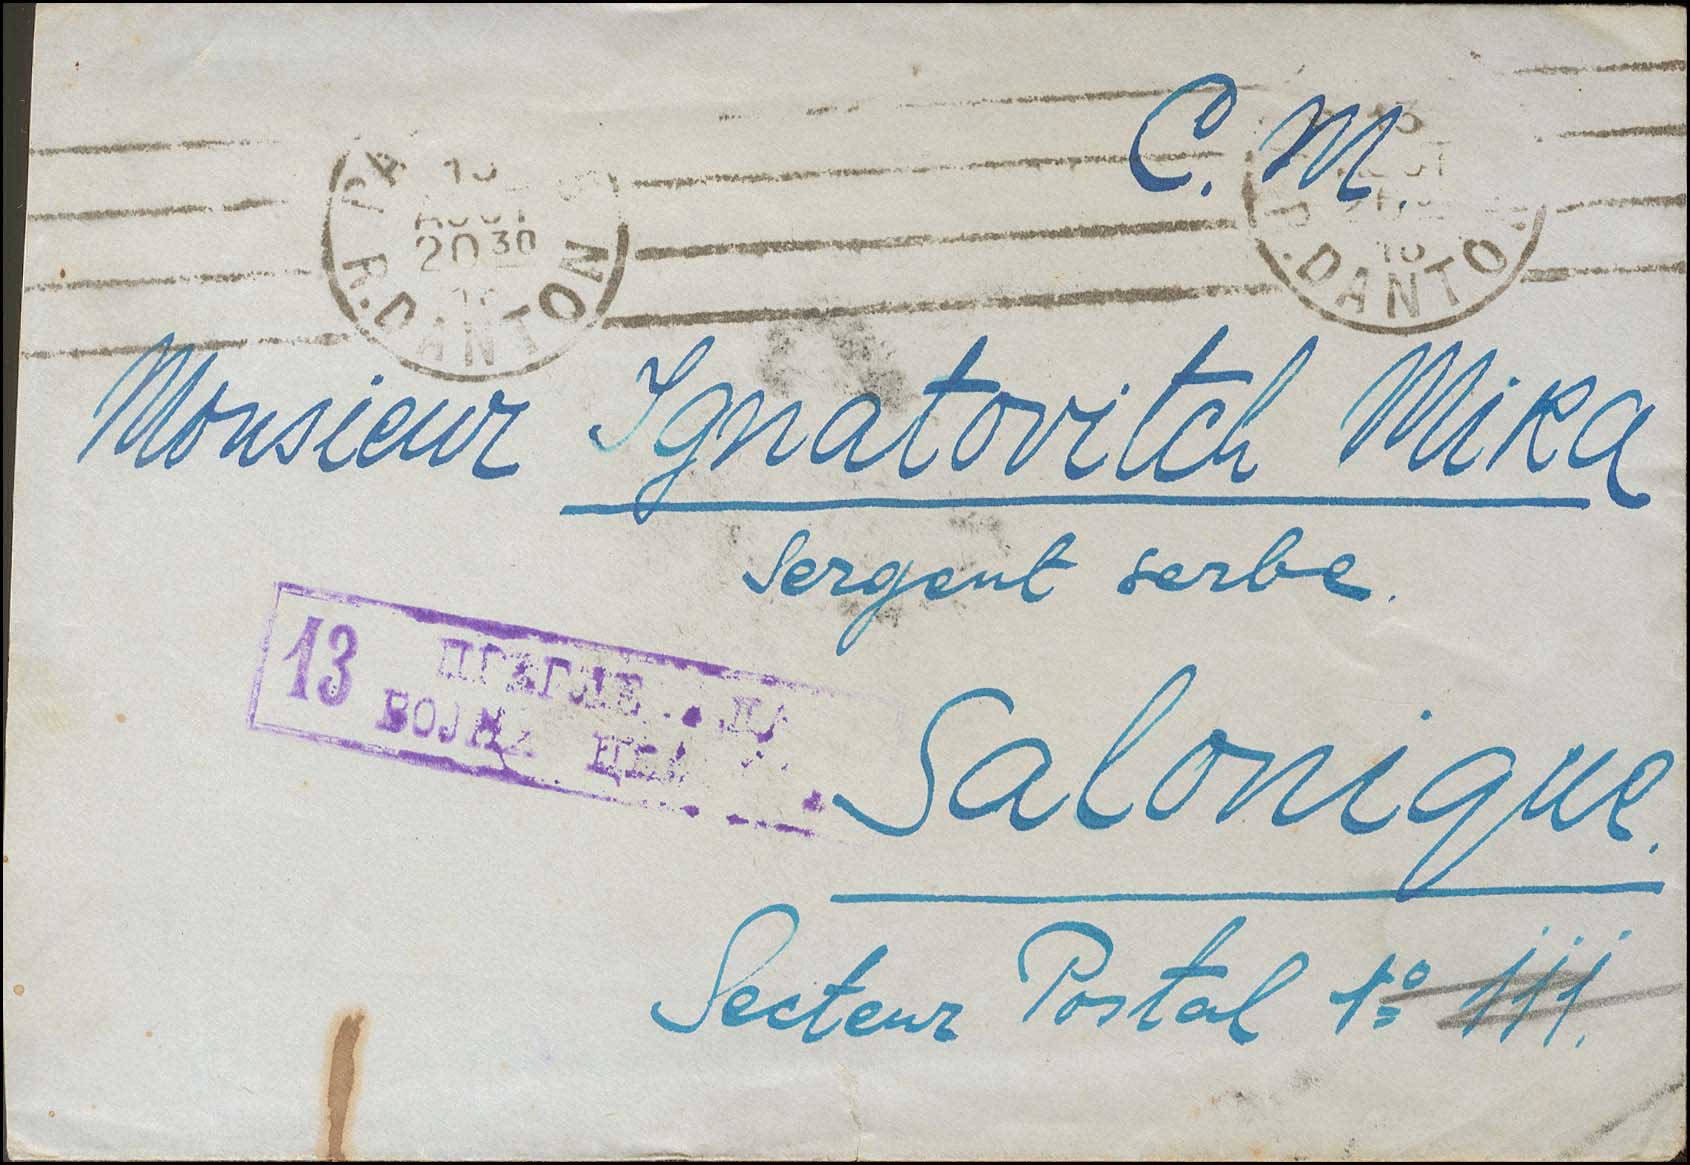 C. M.
AOUT
20 30
R. DANTON
AOUT
DANTO
Monsieur Ignatovitch Mika
Sergent serbe.
13
ВОЈНА
Salonique.
Secteur Postal 1º 111.